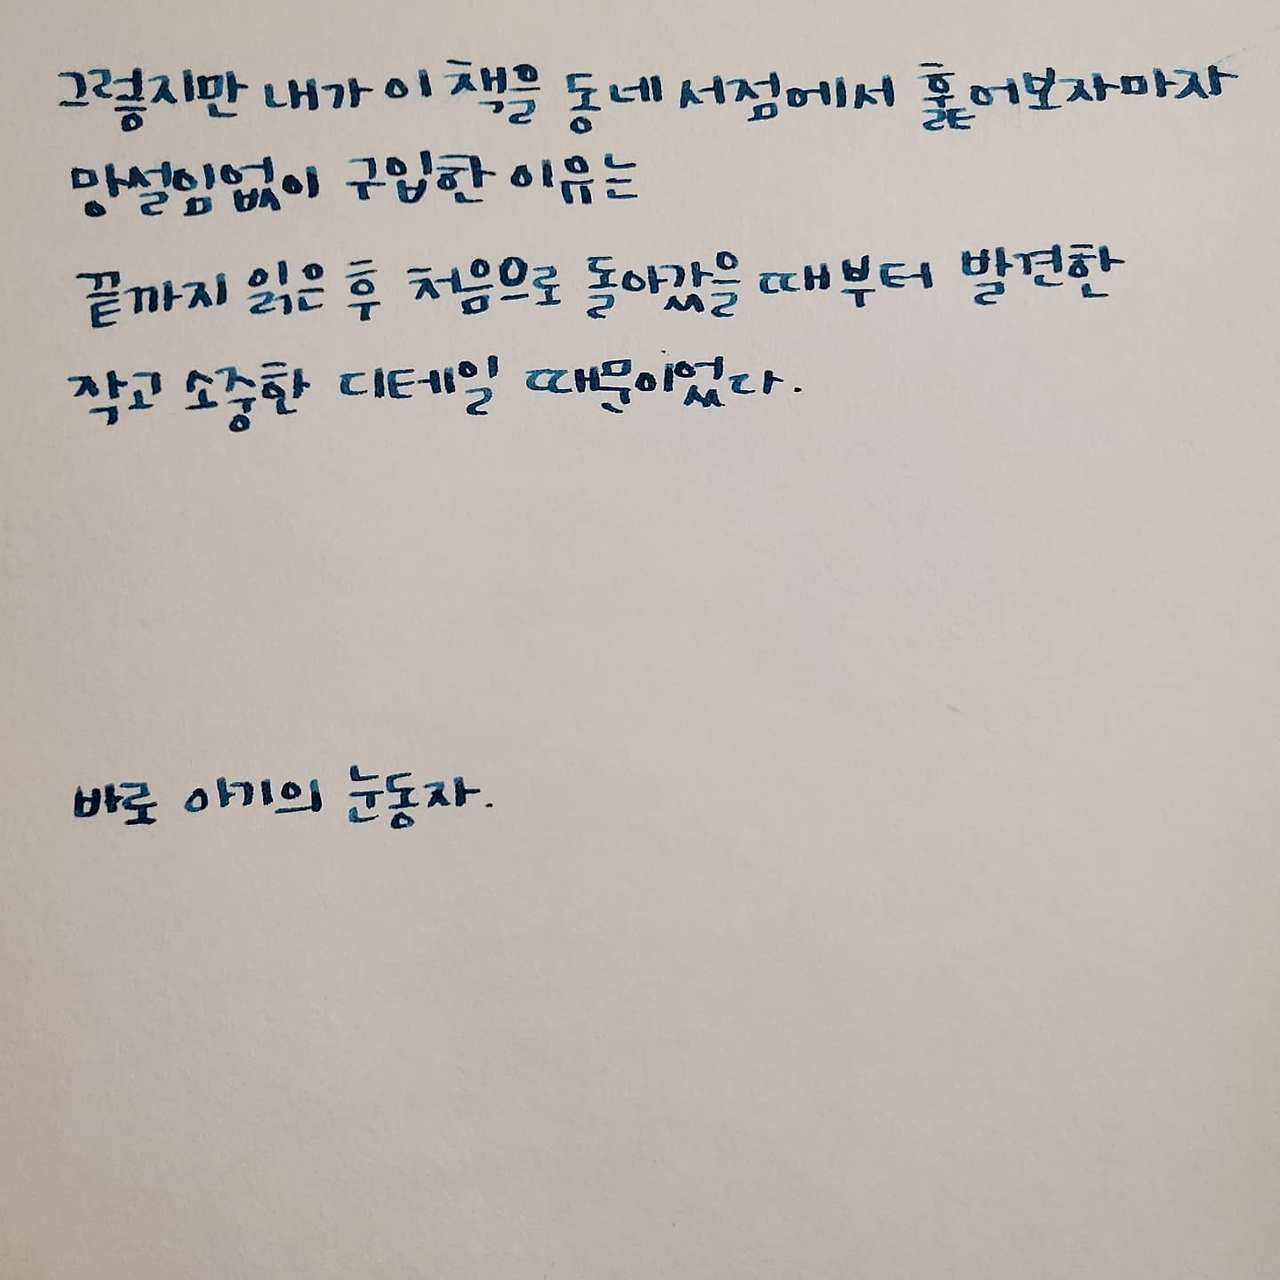 그렇지만 내가 이 책을 동네 서점에서 훑어보자마자
망설임없이 구입한 이유는
끝까지 읽은 후 처음으로 돌아갔을 때부터 발견한
작고 소중한 디테일 때문이었다.
바로 아기의 눈동자.